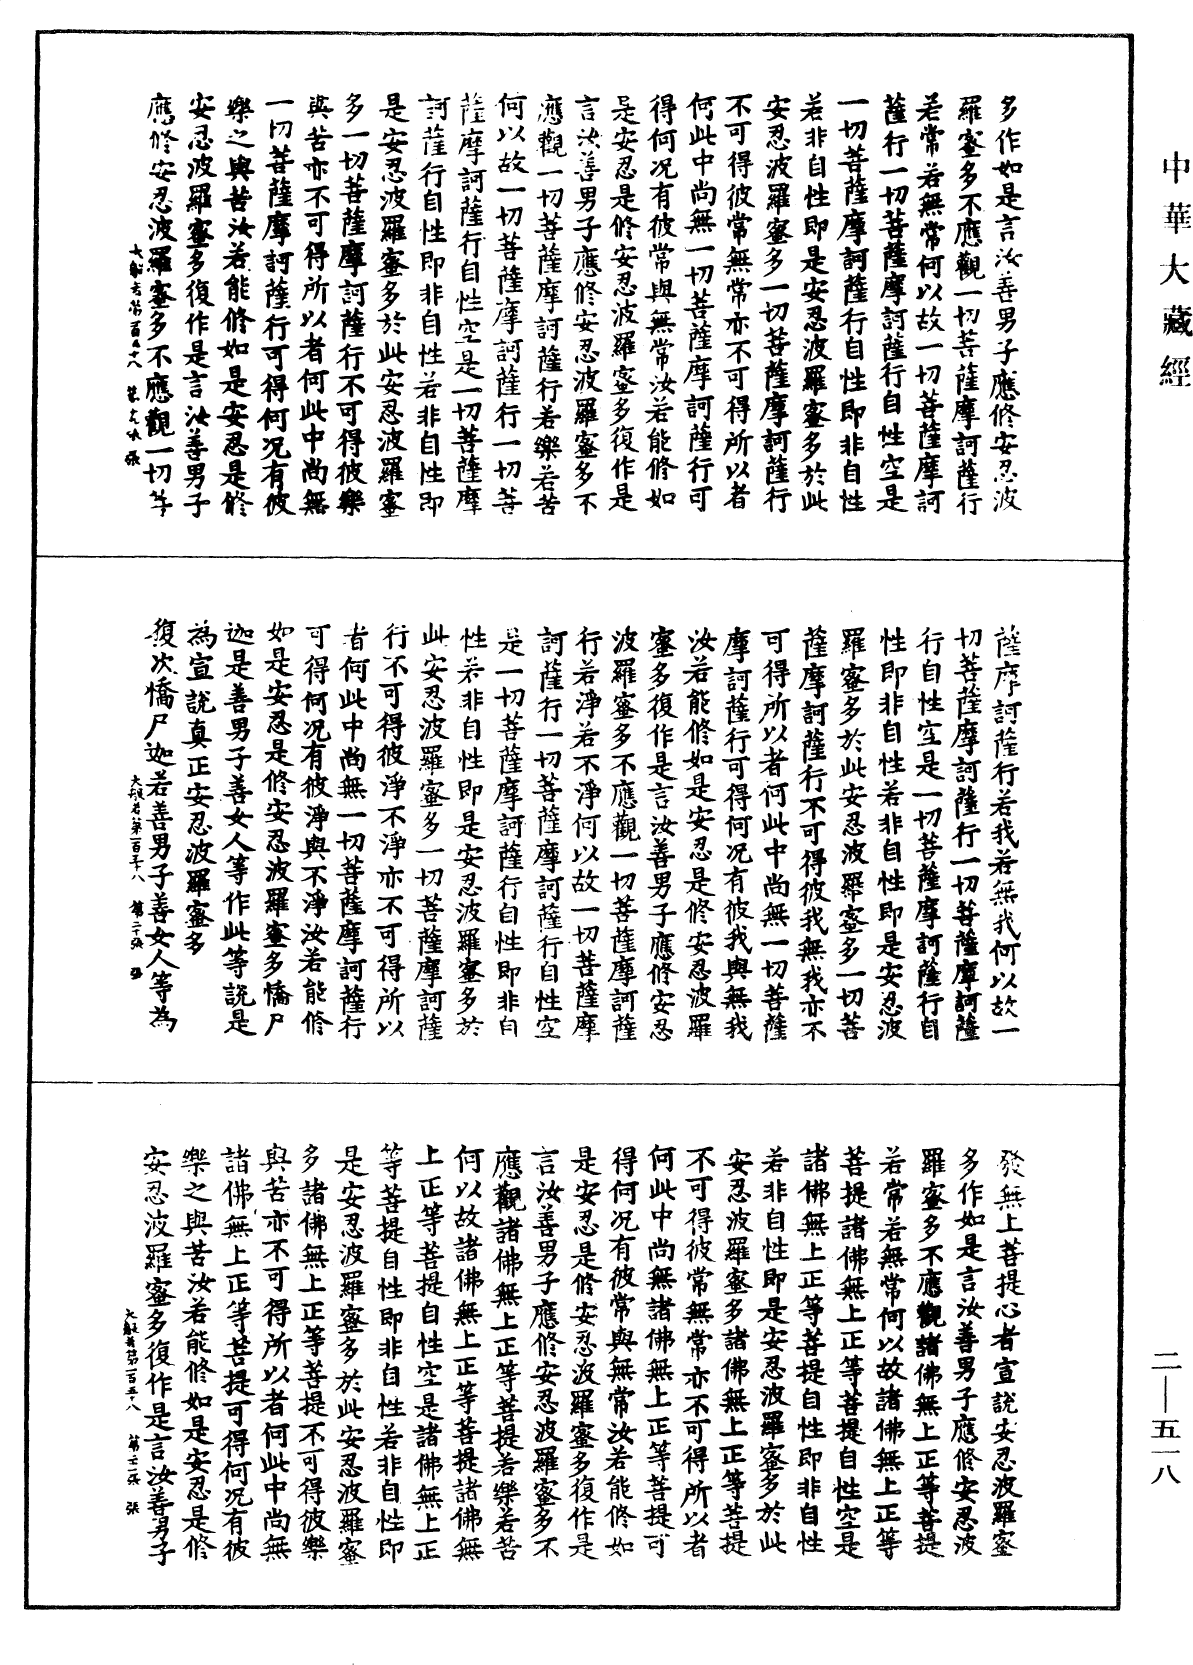 中華大藏經
多作如是言汝善男子應修安忍波
羅蜜多不應觀一切菩薩摩訶薩行
若常若無常何以故一切菩薩摩訶
薩行一切菩薩摩訶薩行自性空是
一切菩薩摩訶薩行自性即非自性
若非自性即是安忍波羅蜜多於此
安忍波羅蜜多一切菩薩摩訶薩行
不可得彼常無常亦不可得所以者
何此中尚無一切菩薩摩訶薩行可
得何況有彼常與無常汝若能修如
是安忍是修安忍波羅蜜多復作是
言汝善男子應修安忍波羅蜜多不
應觀一切菩薩摩訶薩行若樂若苦
何以故一切菩薩摩訶薩行一切菩
薩摩訶薩行自性空是一切菩薩摩
訶薩行自性即非自性若非自性即
是安忍波羅蜜多於此安忍波羅蜜
多一切菩薩摩訶薩行不可得彼樂
與苦亦不可得所以者何此中尚無
一切菩薩摩訶薩行可得何況有彼
樂之與苦汝若能修如是安忍是修
安忍波羅蜜多復作是言汝善男子
應修安忍波羅蜜多不應觀一切菩
大般若第一百五十八 第十九張
薩摩訶薩行若我若無我何以故一
切菩薩摩訶薩行一切菩薩摩訶薩
行自性空是一切菩薩摩訶薩行自
性即非自性若非自性即是安忍波
羅蜜多於此安忍波羅蜜多一切菩
薩摩訶薩行不可得彼我無我亦不
可得所以者何此中尚無一切菩薩
摩訶薩行可得何況有彼我與無我
汝若能修如是安忍是修安忍波羅
蜜多復作是言汝善男子應修安忍
波羅蜜多不應觀一切菩薩摩訶薩
行若淨若不淨何以故一切菩薩摩
訶薩行一切菩薩摩訶薩行自性空
是一切菩薩摩訶薩行自性即非自
性若非自性即是安忍波羅蜜多於
此安忍波羅蜜多一切菩薩摩訶薩
行不可得彼淨不淨亦不可得所以
者何此中尚無一切菩薩摩訶薩行
可得何況有彼淨與不淨汝若能修
如是安忍是修安忍波羅蜜多憍尸
迦是善男子善女人等作此等說是
為宣說真正安忍波羅蜜多
復次憍尸迦若善男子善女人等為
大般若第一百五十八 第二十張
發無上菩提心者宣說安忍波羅蜜
多作如是言汝善男子應修安忍波
羅蜜多不應觀諸佛無上正等菩提
若常若無常何以故諸佛無上正等
菩提諸佛無上正等菩提自性空是
諸佛無上正等菩提自性即非自性
若非自性即是安忍波羅蜜多於此
安忍波羅蜜多諸佛無上正等菩提
不可得彼常無常亦不可得所以者
何此中尚無諸佛無上正等菩提可
得何況有彼常與無常汝若能修如
是安忍是修安忍波羅蜜多復作是
言汝善男子應修安忍波羅蜜多不
應觀諸佛無上正等菩提若樂若苦
何以故諸佛無上正等菩提諸佛無
上正等菩提自性空是諸佛無上正
等菩提自性即非自性若非自性即
是安忍波羅蜜多於此安忍波羅蜜
多諸佛無上正等菩提不可得彼樂
與苦亦不可得所以者何此中尚無
諸佛無上正等菩提可得何況有彼
樂之與苦汝若能修如是安忍是修
安忍波羅蜜多復作是言汝善男子
大般若第一百五十八 第廿一張
二—五一八